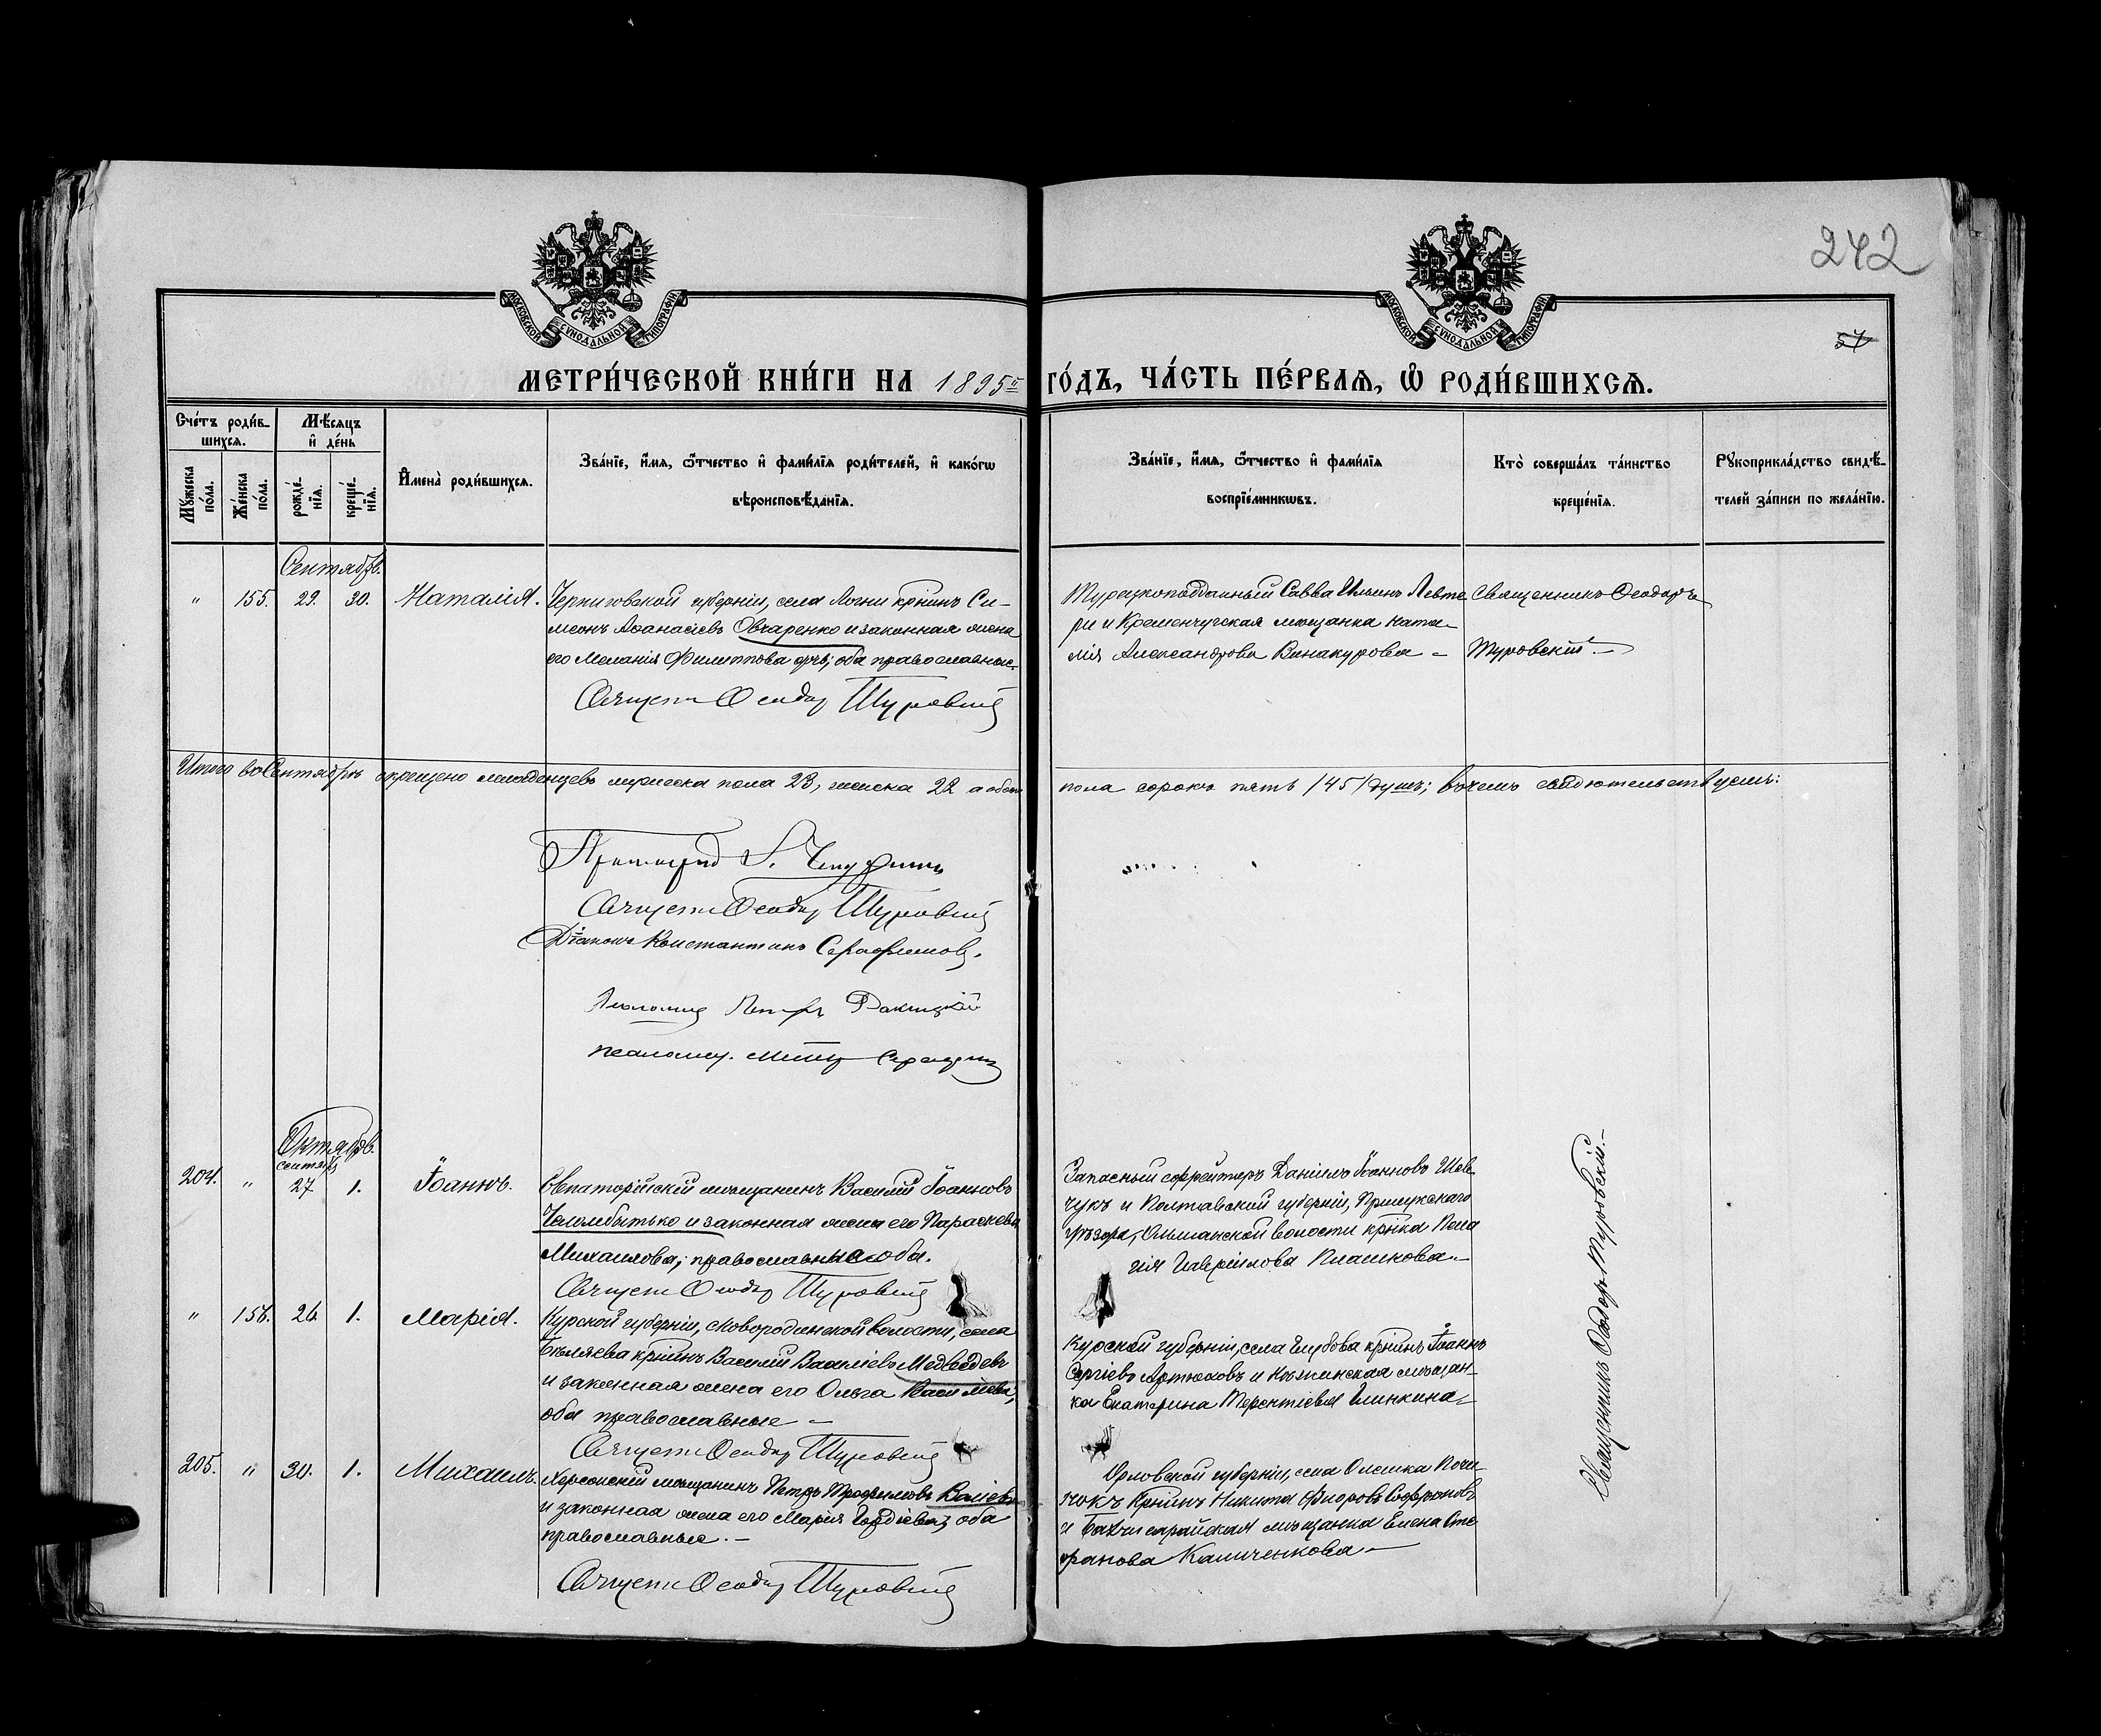 242
57
МОСКОВСКОЙ СѴНОДАЛЬНОЙ ТИПОГРАФІИ
МОСКОВСКОЙ СѴНОДАЛЬНОЙ ТИПОГРАФІИ
МЕТРИ́ЧЕСКОЙ КНИ́ГИ НА 1895й ГО́ДЪ, ЧА́СТЬ ПЕ́РВАЯ, Ѡ҆ РОДИ́ВШИХСЯ.
Сче́тъ роди́в-
шихся.
Мѣ́сяцъ
и҆ де́нь
Мꙋ́жеска
по́ла.
Же́нска
по́ла.
рожде́-
нїя.
креще́-
нїя.
И҆мена̀ роди́вшихся.
Зва́нїе, и҆́мя, ѻ҆́тчество и҆ фами́лїя роди́телей, и҆ како́гѡ
вѣроисповѣ́данїя.
Зва́нїе, и҆́мя, ѻ҆́тчество и҆ фами́лїя
воспрїе́мникѡвъ.
Кто̀ соверша́лъ та́инство
креще́нїя.
Рꙋкоприкла́дство свидѣ́-
телей за́писи по жела́нїю.
Сентябрь.
" 155. 29. 30. Наталія.
Черниговской губерніи, села крнинъ Си-
меонъ Аѳанасіевъ Овчаренко и законная жена
его Меланія Филиппова оба православные.
Священ Ѳеодор Туровскій
Турецкоподданный Савва Ильинъ Левте
ри и Кременчугская мѣщанка Ната-
лія Александрова Винакурова –
Священникъ Ѳеодоръ
Туровскій. –
Итого въ Сентябрѣ крещено младенцевъ мужеска пола 23, женска 22 а обоего
пола сорокъ пять /45/ душъ; въ чемъ свидѣтельствуемъ:
Священ Ѳеодор Туровскій
Діаконъ Константинъ Серафимовъ.
Псаломщ Петръ
псаломщ.
Октябрь.
сентябр
204. " 27 1. Іоаннъ.
Евпаторійскій мѣщанинъ Василій Іоанновъ
Челомбитько и законная жена его Параскева
Михаилова; православные оба.
Священ Ѳеодор Туровскій
Запасный ефрейторъ Даніилъ Іоанновъ Шев-
чукъ и Полтавской губерніи, Прилукскаго
уѣзда, Ольшанской волости крнка Пела
гія Гавріилова Плашкова –
" 156. 26. 1. Марія.
Курской губерніи, волости, села
Бѣляева крнинъ Василій Василіевъ Медведевъ
и законная жена его Ольга Василіева,
оба православные –
Священ Ѳеодор Туровскій
Курской губерніи, села Глубова крнинъ Іоаннъ
Сергіевъ Артюховъ и мѣщан-
ка Екатерина Терентіева Глинкина
205. " 30. 1. Михаилъ.
Херсонскій мѣщанинъ Петръ Трофимовъ
и законная жена его Марія Гордіева; оба
православные. –
Священ Ѳеодор Туровскій
Орловской губерніи, села Олешка Почи-
нокъ крнинъ Никита Ѳиоровъ Софроновъ
и Бахчисарайская мѣщанка Елена Сте
фанова Каличенкова –
Священникъ Ѳеодоръ Туровскій. –